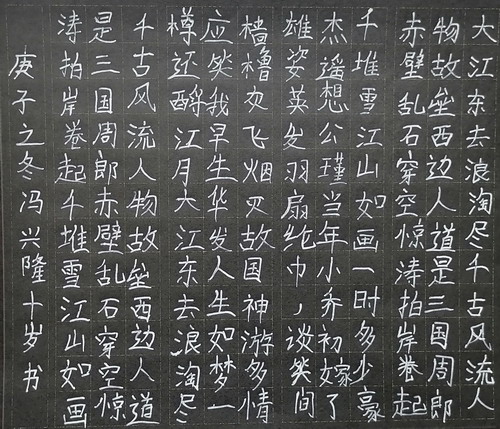 大江东去浪淘尽千古风流人
物故垒西边人道是三国周郎
赤壁乱石穿空惊涛拍岸卷起
千堆雪江山如画一时多少豪
杰遥想公瑾当年小乔初嫁了
雄姿英发羽扇纶巾，谈笑间
樯橹灰飞烟灭故国神游多情
应笑我早生华发人生如梦一
樽还酹江月大江东去浪淘尽
千古风流人物故垒西边人道
是三国周郎赤壁乱石穿空惊
涛拍岸卷起千堆雪江山如画
庚子之冬冯兴隆十岁书